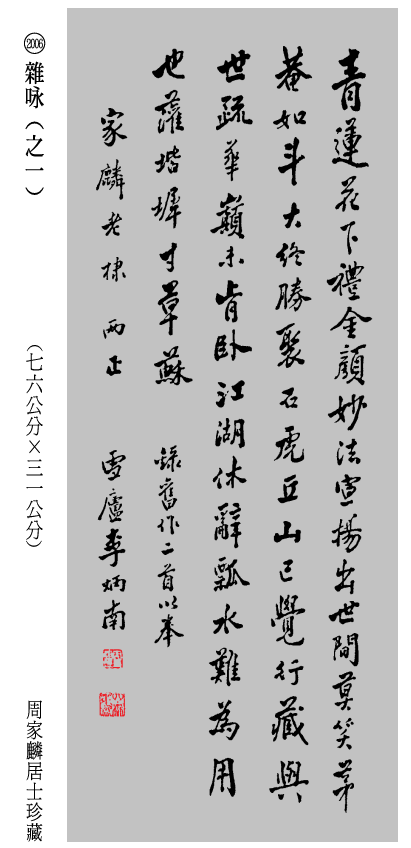 青蓮花下禮金顏妙法宣揚出世間莫笑茅
菴如斗大終勝聚石虎丘山已覺行藏與
世疏華巔未肯臥江湖休辭瓢水難為用
也灌堦墀寸草蘇 錄舊作二首以奉
家麟老棣 兩正 雪廬李炳南
2006 雜咏（之一） （七六公分×三一公分） 周家麟居士珍藏